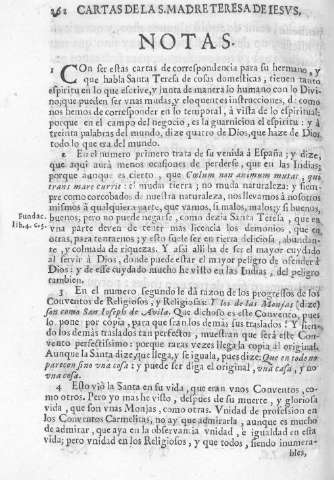 262 CARTAS DE LA S. MADRE TERESA DE IESVS,
NOTAS.
1 CON ser estas cartas de correspondencia para su hermano, y
que habla Santa Teresa de cosas domesticas, tienen tanto
espiritu en lo que escrive, y junta de manera lo humano con lo Divi-
no, que pueden ser vnas mudas, y eloquentes instrucciones, de como
nos hemos de corresponder en lo temporal, à vista de lo espiritual,
porque en el campo del negocio, es la guarnicion el espiritu: y à
treinta palabras del mundo, dize quatro de Dios, que haze de Dios
todo lo que era del mundo.
2 En el numero primero trata de su venida à España; y dize,
que aqui aurà menos ocasiones de perderse, que en las Indias;
porque aunque es cierto, que Cælum non animum mutat, qui
trans mare currit: el mudar tierra; no muda naturaleza; y siem-
pre como corcobados de nuestra naturaleza, nos llevamos à nosotros
mismos à qualquiera parte, que vamos, si malos, malos; y si buenos,
buenos, pero no puede negarse, como dezia Santa Teresa, que en
Fundac.
lib.4. c.5.
vna parte deven de tener mas licencia los demonios, que en
otras, para tentarnos; y esto suele ser en tierra deliciosa, abundan-
te, y colmada de riquezas. Y assi alli ha de ser el mayor cuydado
al servir à Dios, donde puede estar el mayor peligro de ofender à
Dios: y de esse cuydado mucho he visto en las Indias, del peligro
tambien.
3 En el numero segundo le dà razon de los progressos de los
Conventos de Religiosos, y Religiosas: Y los de las Monjas (dize)
son como San Ioseph de Avila. Que dichoso es este Convento, pues
lo pone por copia, para que sean los demas sus traslados! Y sien-
do los demàs traslados tan perfectos, muestran que serà este Con-
vento perfectissimo: porque raras vezes llega la copia al original.
Aunque la Santa dize, que llega, y se iguala, pues dize: Que en todo no
parecen sino vna cosa: y puede ser diga el original, vna casa, y no
vna cosa.
4 Esto viò la Santa en su vida, que eran vnos Conventos, co-
mo otros. Pero yo mas he visto, despues de su muerte, y gloriosa
vida, que son vnas Monjas, como otras. Vnidad de profession en
los Conventos Carmelitas, no ay que admirarla, aunque es mucho
de admirar, que aya en la observancia vnidad, è igualdad en esta
vida; pero vnidad en los Religiosos, y que todos, siendo inumera-
bles,